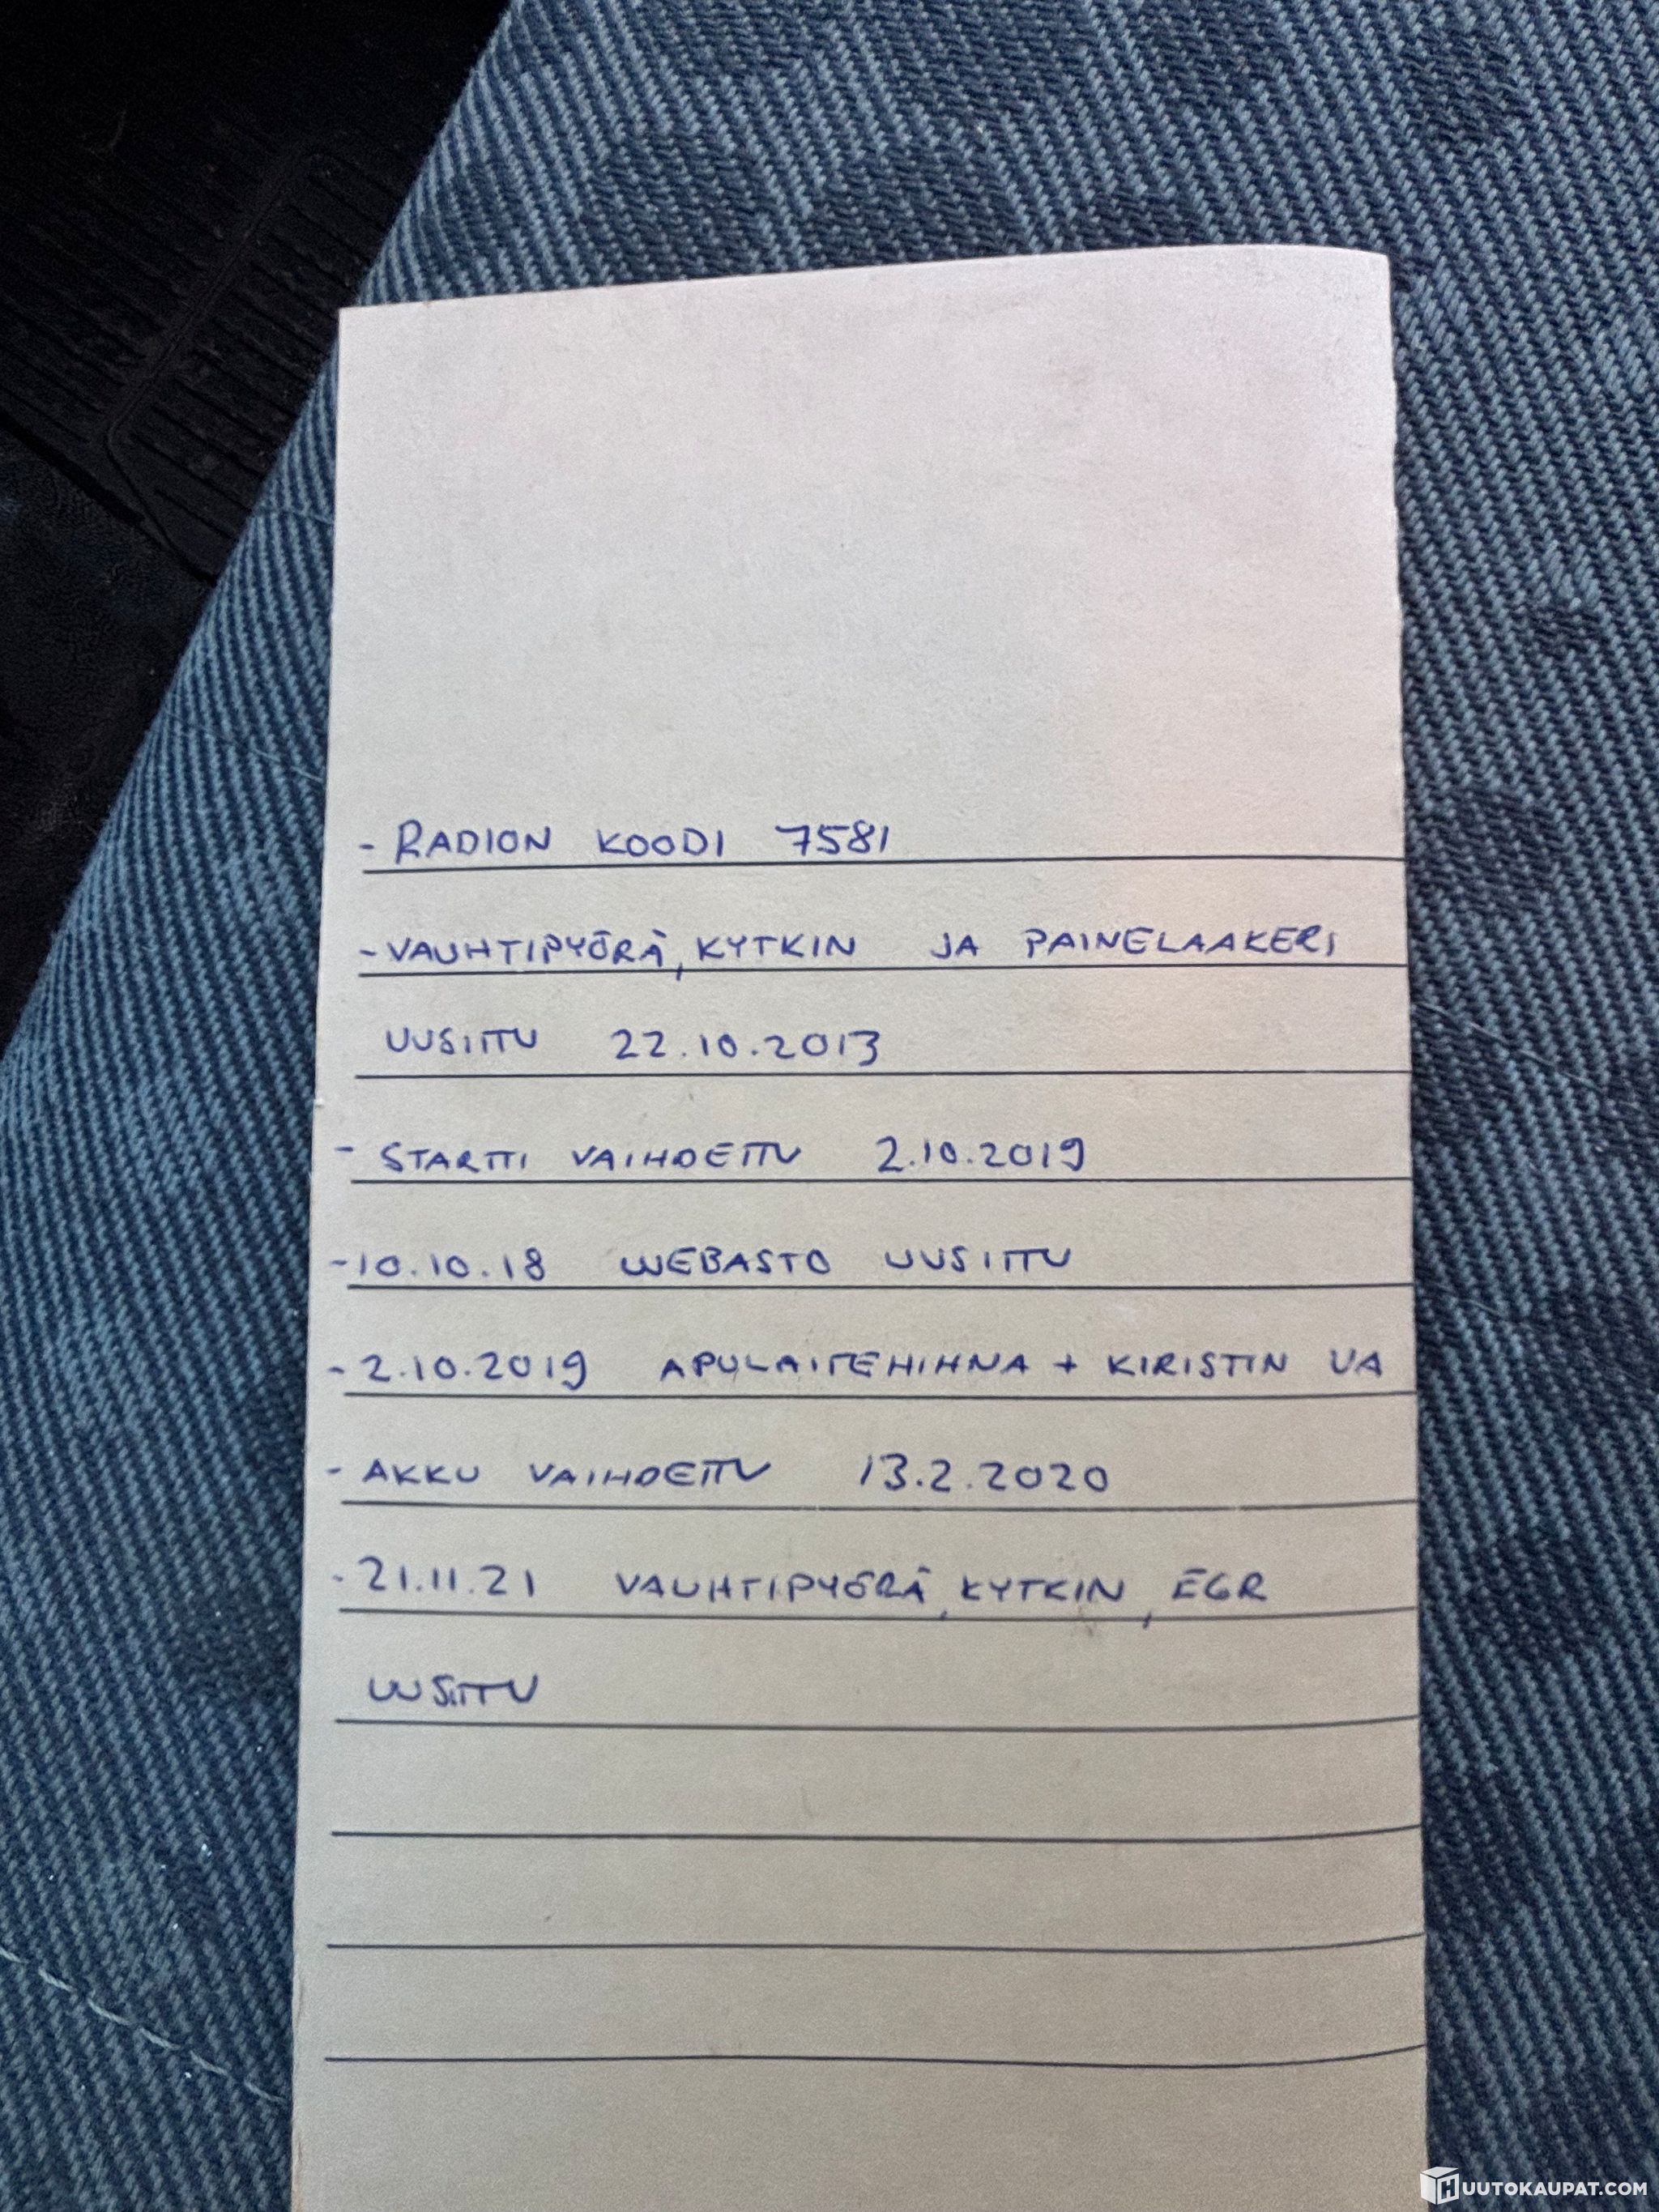 - RADION KOODI 7581
- VAUHTIPYÖRÄ, KYTKIN JA PAINELAAKERI
UUSITTU 22.10.2013
- STARTTI VAIHDETTU 2.10.2019
- 10.10.18 WEBASTO UUSITTU
- 2.10.2019 APULAITEHIHNA + KIRISTIN VA
- AKKU VAIHDETTU 13.2.2020
- 21.11.21 VAUHTIPYÖRÄ, KYTKIN, EGR
UUSITTU
HUUTOKAUPAT.COM